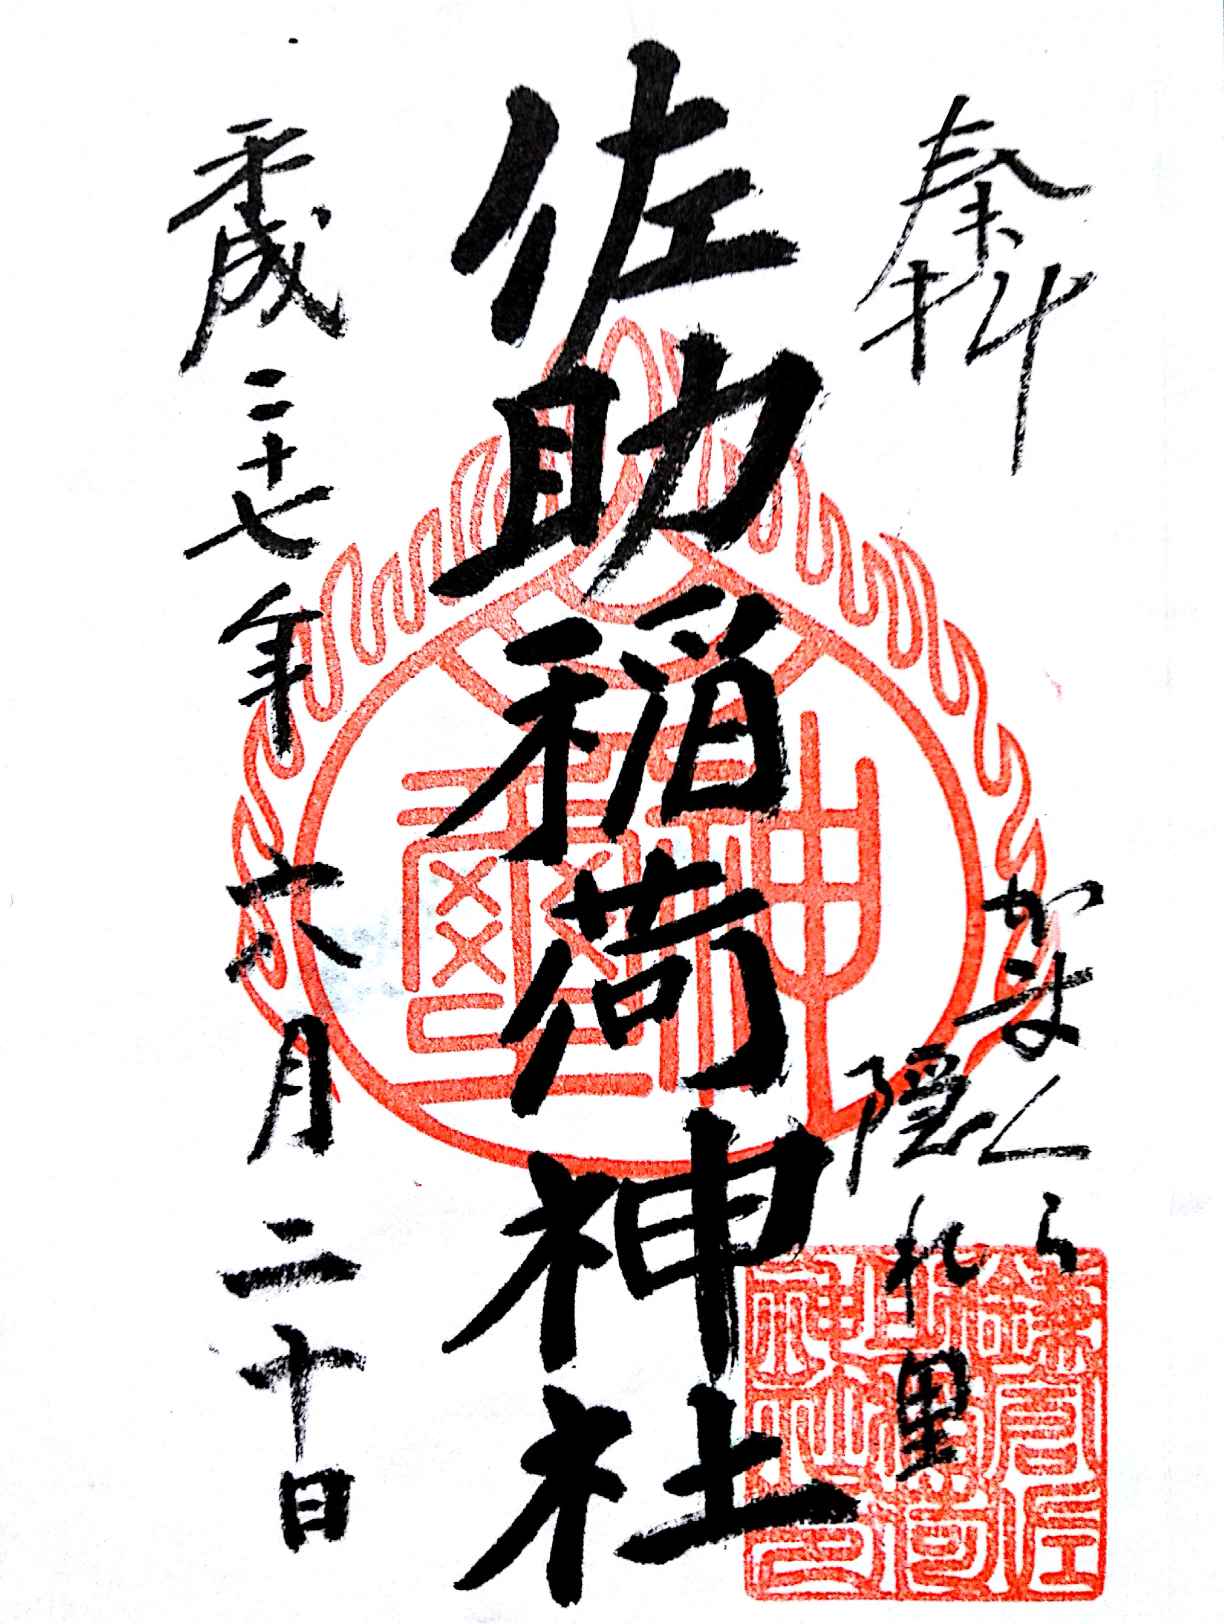 奉拝
かまくら
隠れ里
佐助稲荷神社
平成二十七年六月二十日
神璽
鎌倉佐
助稲荷
神社印